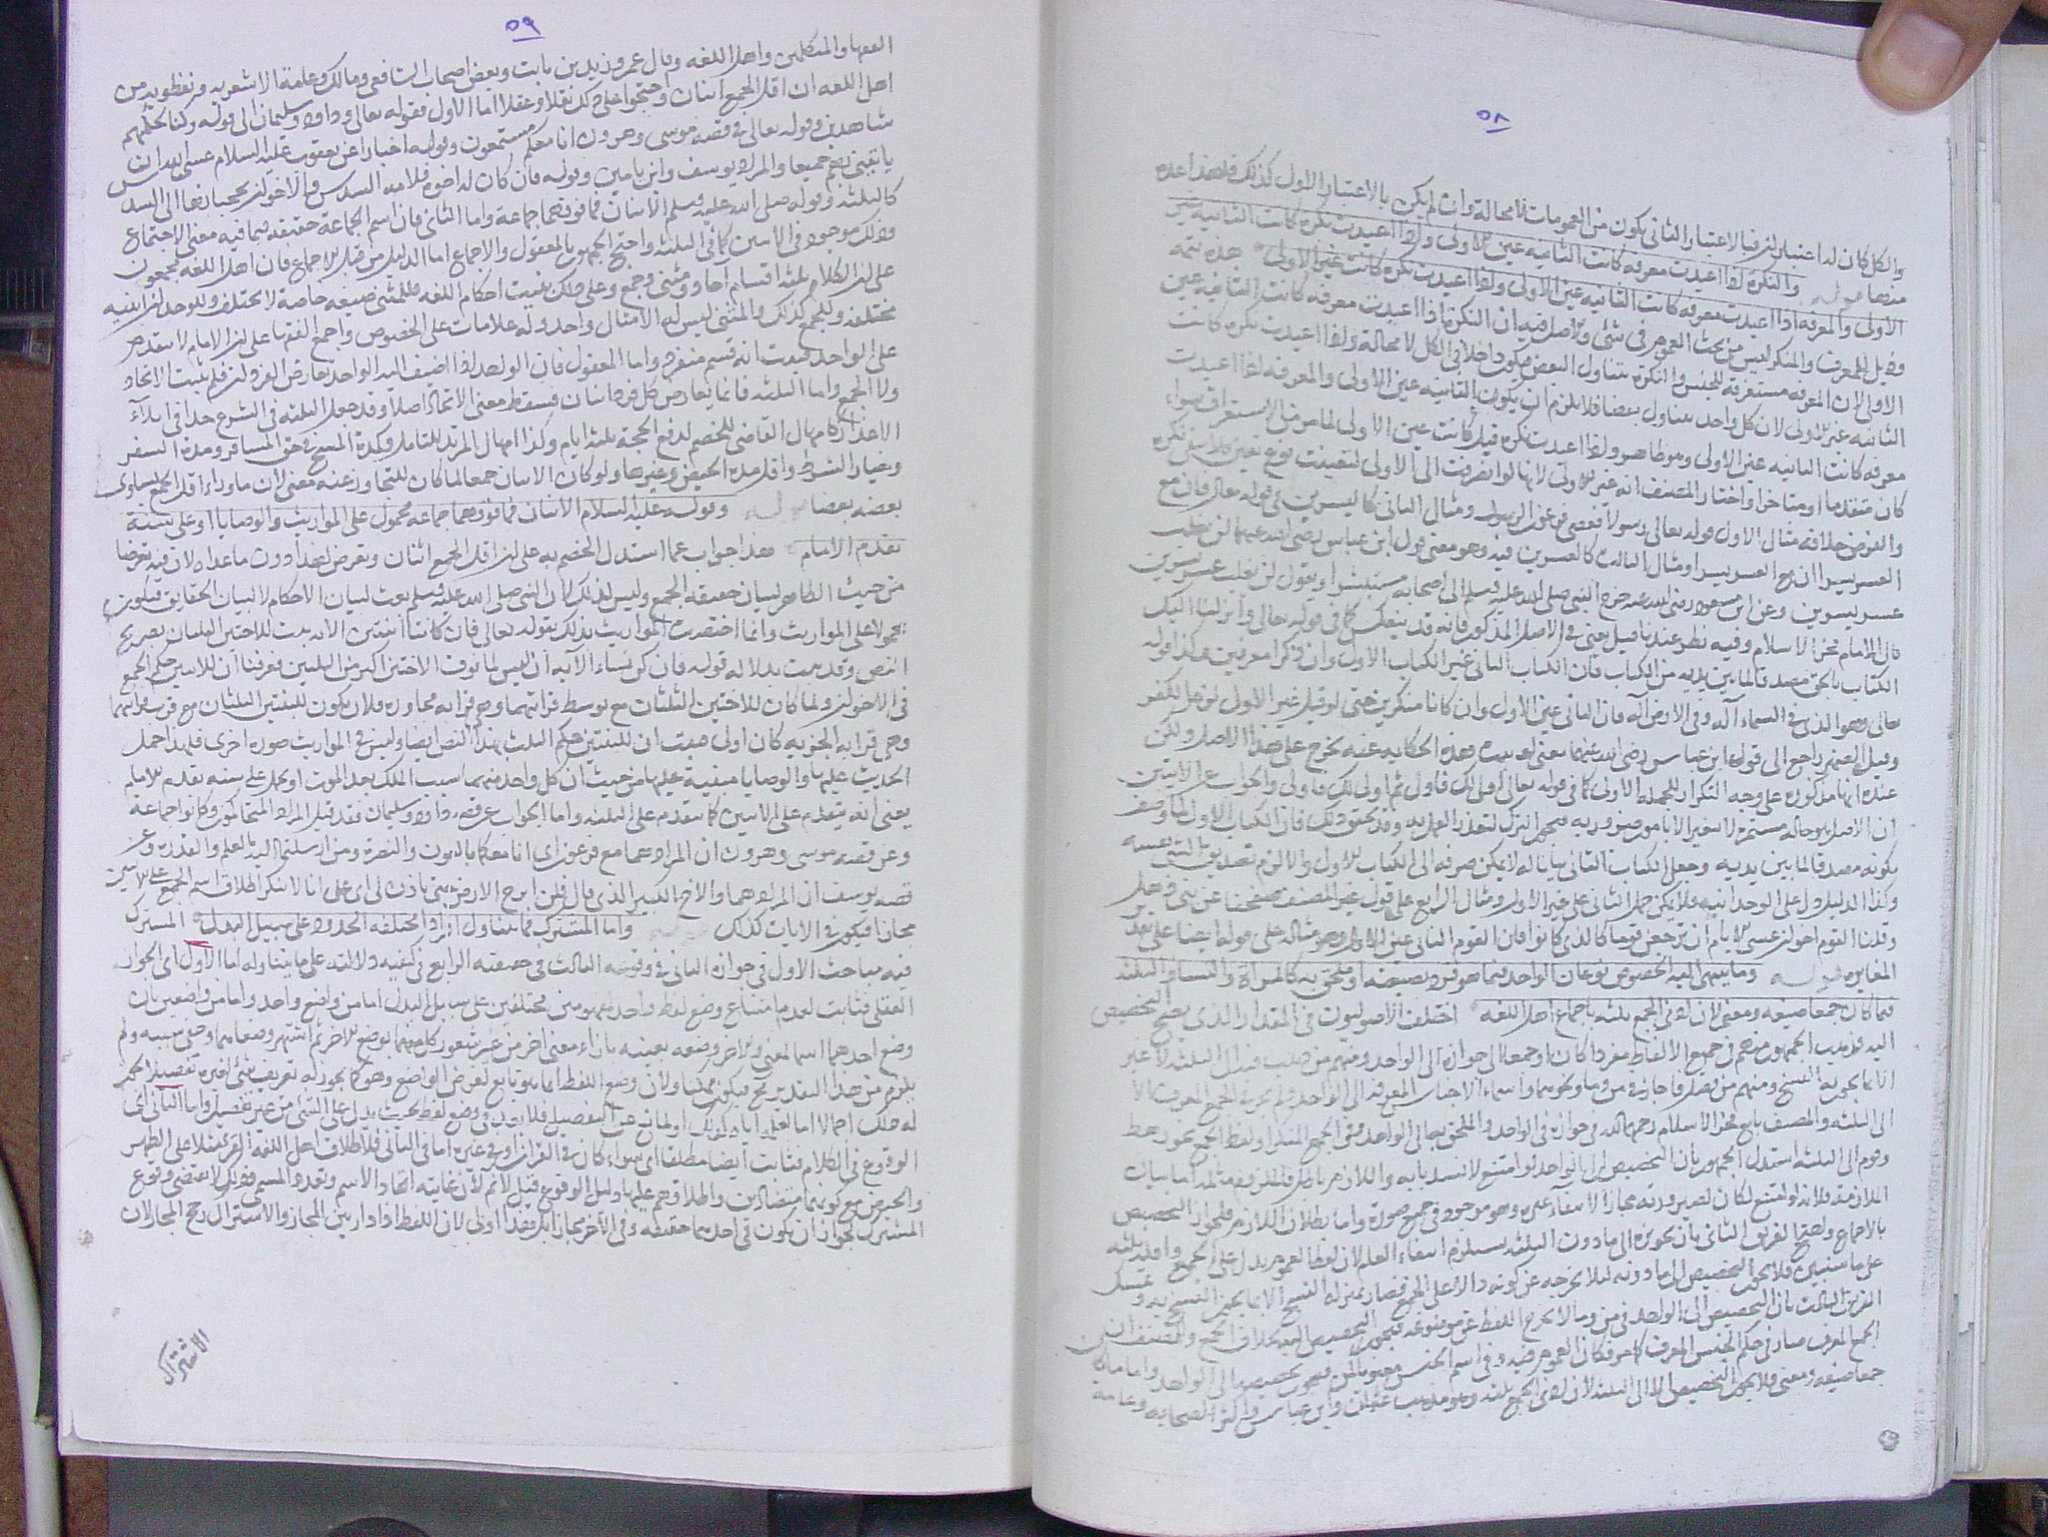 ٥٨
والكل كان له اعتبار اخر فبالاعتبار الثاني يكون من العمومات لا محالة وان لم يكن بالاعتبار الاول كذلك فلهذا عده
منها والنكرة اذا اعيدت معرفة كانت الثانية عين الاولى واذا اعيدت نكرة كانت الثانية غير
الاولى والمعرفة اذا اعيدت معرفة كانت الثانية عين الاولى واذا اعيدت نكرة كانت غير الاولى هذه تتمة
وذيل للمعرف والمنكر ليس من بحث العموم في شئ والاصل فيه ان النكرة اذا اعيدت معرفة كانت الثانية عين
الاولى لان المعرفة مستغرقة للجنس والنكرة تتناول البعض فيكون داخلا في الكل لا محالة واذا اعيدت نكرة كانت
الثانية غير الاولى لان كل واحد يتناول بعضا فلا يلزم ان يكون الثانية عين الاولى والمعرفة اذا اعيدت
معرفة كانت الثانية عين الاولى وهو ظاهر واذا اعيدت نكرة قيل كانت عين الاولى لما مر من الاستغراق سواء
كان متقدما او متاخرا واختار المصنف انه غير الاولى لانها لو انصرفت الى الاولى لتعينت نوع تعين فلا تبقى نكرة
والفرض خلافه مثال الاول قوله تعالى رسولا فعصى فرعون الرسول ومثال الثاني كاليسرين في قوله تعالى فان مع
العسر يسرا ان مع العسر يسرا ومثال الثالث كالعسرين فيه وهو معنى قول ابن عباس رضي الله عنهما لن يغلب
عسر يسرين وعن ابن مسعود رضي الله عنه خرج النبي صلى الله عليه وسلم الى اصحابه مستبشرا ويقول لن يغلب عسر يسرين
قال الامام فخر الاسلام وفيه نظر عندنا قيل يعني في الاصل المذكور فانه قد ينعكس كما في قوله تعالى وانزلنا اليك
الكتاب بالحق مصدقا لما بين يديه من الكتاب فان الكتاب الثاني غير الكتاب الاول وان ذكرا معرفين وكذا قوله
تعالى وهو الذي في السماء اله وفي الارض اله فان الثاني عين الاول وان كانا منكرين حتى لو قيل غير الاول لزم الكفر
وقيل الضمير راجع الى قول ابن عباس رضي الله عنهما يعني لم يثبت هذه الحكاية عنه يخرج على هذا الاصل ولكن
عنده انها مذكورة على وجه التكرار للجملة الاولى كما في قوله تعالى اولى لك فاولى ثم اولى لك فاولى والجواب عن الآيتين
ان الاصل هو حالة مستمرة لا يتغير الا بامور ضرورية فيجوز الترك لتعذر العمل به وقد تحقق ذلك فان الكتاب الاول لما وصف
بكونه مصدقا لما بين يديه وجعل الكتاب الثاني بيانا له لا يمكن صرفه الى الكتاب الاول والا لزم تصديق الشئ نفسه
وكذا الدليل دل على الوحدانية فلا يمكن حمل الثاني على غير الاول ومثال الرابع على قول غير المصنف صفحنا عن بني ذهل
وقلنا القوم اخوان عسى الايام ان ترجعن قوما كالذي كانوا فان القوم الثاني عين الاول وهو مثاله على قوله ايضا على تقدير
المغايرة وما ينتهي اليه الخصوص نوعان الواحد فيما هو فرد بصيغته او ملحق به كالمراة والنساء والثلثة
فيما كان جمعا صيغة ومعنى لان ادنى الجمع ثلثة باجماع اهل اللغة اختلف الاصوليون في المقدار الذي يصح التخصيص
اليه فذهب الجمهور منهم في جميع الالفاظ مفردا كان او جمعا الى جوازه الى الواحد ومنهم من ذهب فيه الى الثلثة لا غير
انما يجوز به النسخ ومنهم من فصل فاجاز في من وما ونحوهما واسماء الاجناس المعرفة الى الواحد ولم يجوز في الجمع المعرف الا
الى الثلثة والمصنف تابع فخر الاسلام رحمه الله في جوازه في الواحد والملحق به الى الواحد وفي الجمع المنكر او لفظ الجمع نحو رهط
وقوم الى الثلثة استدل الجمهور بان التخصيص الى الواحد لو امتنع لانسد بابه واللازم باطل فالملزوم مثله اما بيان
الملازمة فلانه لو امتنع لكان لصيرورته مجازا اذ لا مانع غيره وهو موجود في جميع صوره واما بطلان اللازم فلجواز التخصيص
بالاجماع واحتج الفريق الثاني بان تجويزه الى ما دون الثلثة يستلزم انتفاء العام لان لفظ العموم يدل على الجمع واقله ثلثة
على ما سنبين فلا يجوز التخصيص الى ما دونه لئلا يخرجه عن كونه دالا على الجمع فصار بمنزلة النسخ الا بما يجوز النسخ به وتمسك
الفريق الثالث بان التخصيص الى الواحد في من وما لا يخرج اللفظ عن موضوعه فيجوز التخصيص اليه بخلاف الجمع والمصنف ان
الجمع المعرف صار في حكم الجنس المعرف فكان العموم فيه وفي اسم الجنس معنويا فيجوز تخصيصها الى الواحد واما ما كان
جمعا صيغة ومعنى فلا يجوز التخصيص الا الى الثلثة لان ادنى الجمع ثلثة وهو مذهب عثمان وابن عباس واكثر الصحابة وعامة
٥٩
الفقهاء والمتكلمين واهل اللغة وقال عمر وزيد بن ثابت وبعض اصحاب الشافعي ومالك وعامة الاشعرية ونفطويه من
اهل اللغة ان اقل الجمع اثنان واحتجوا على ذلك نقلا وعقلا اما الاول فقوله تعالى وداود وسليمان الى قوله وكنا لحكمهم
شاهدين وقوله تعالى في قصة موسى وهرون انا معكم مستمعون وقوله اخبارا عن يعقوب عليه السلام عسى الله ان
ياتيني بهم جميعا والمراد يوسف وابن يامين وقوله فان كان له اخوة فلامه السدس والاخوان يحجبانها الى السدس
كالثلثة وقوله صلى الله عليه وسلم الاثنان فما فوقهما جماعة واما الثاني فان اسم الجماعة حقيقة فيما فيه معنى الاجتماع
وذلك موجود في الاثنين كما في الثلثة واحتج الجمهور بالمعقول والاجماع اما الدليل من قبل الاجماع فان اهل اللغة مجمعون
على ان الكلام ثلثة اقسام احاد ومثنى وجمع وعلى ذلك بنيت احكام اللغة فللمثنى صيغة خاصة لا يختلف وللوحدان ابنية
مختلفة وللجمع كذلك والمثنى ليس له الا مثال واحد وله علامات على الخصوص واجمع الفقهاء على ان الامام لا يتقدم
على الواحد فثبت انه قسم منفرد واما المعقول فان الواحد اذا اضيف اليه الواحد تعارض الفردان فلم يثبت الاتحاد
ولا الجمع واما الثلثة فانما يعارض كل فرد اثنان فسقط معنى الاتحاد اصلا وقد جعل الثلثة في الشرع حدا في ابلاء
الاعذار كامهال القاضي للخصم لدفع الحجة ثلثة ايام وكذا امهال المرتد للتامل وكمدة المسح في حق المسافر ومدة السفر
وخيار الشرط واقل مدة الحيض وغيرها ولو كان الاثنان جمعا لما كان للتجاوز عنه معنى لان ما وراء اقل الجمع يساوي
بعضه بعضا وقوله عليه السلام الاثنان فما فوقهما جماعة محمول على المواريث والوصايا او على سنة
تقدم الامام هذا جواب عما استدل الخصم به على ان اقل الجمع اثنان وتعرض لهذا دون ما عداه لان فيه تعرضا
من حيث الظاهر لبيان حقيقة الجمع وليس كذلك لان النبي صلى الله عليه وسلم بعث لبيان الاحكام لا لبيان الحقايق فيكون
محمولا على المواريث وانما اختصت المواريث بذلك بقوله تعالى فان كانتا اثنتين الآية ثبت للاختين الثلثان بصريح
النص وقد ثبت بدلالة قوله فان كن نساء الآية ان ليس لما فوق الاختين اكثر من الثلثين فعرفنا ان للاثنين حكم الجمع
في الاخوان ولما كان للاختين الثلثان مع توسط قرابتهما وهي قرابة مجاورة فلان يكون للبنتين الثلثان مع قرب قرابتهما
وهي قرابة الجزئية كان اولى فثبت ان للبنتين حكم الثلث بهذا النص ايضا وليس في المواريث صورة اخرى فلهذا حمل
الحديث عليها والوصايا مبنية عليها من حيث ان كل واحد منهما سبب الملك بعد الموت او يحمل على سنة تقدم الامام
يعني انه يتقدم على الاثنين كما يتقدم على الثلثة واما الجواب عن قصة داود وسليمان فقد قيل المراد المتحاكمون وكانوا جماعة
وعن قصة موسى وهرون ان المراد هما مع فرعون اي انا معكما بالعون والنصرة ومن ارسلتما اليه بالعلم والقدرة وعن
قصة يوسف ان المراد هما والاخ الكبير الذي قال فلن ابرح الارض حتى ياذن لي ابي على انا لا ننكر اطلاق اسم الجمع على الاثنين
مجازا فيكون في الآيات كذلك واما المشترك فما يتناول افرادا مختلفة الحدود على سبيل البدل المشترك
فيه مباحث الاول في جوازه الثاني في وقوعه الثالث في حقيقته الرابع في كيفية دلالته على ما يتناوله اما الاول اي الجواز
العقلي فثابت لعدم امتناع وضع لفظ واحد لمفهومين مختلفين على سبيل البدل اما من واضع واحد واما من واضعين بان
وضع احدهما اسما لمعنى والآخر وضعه بعينه بازاء معنى اخر من غير شعور كل منهما بوضع الآخر ثم اشتهر وضعاهما وخفي سببه ولم
يلزم من هذا التقدير مح فيكون ممكنا ولان وضع اللفظ انما هو تابع لغرض الواضع وهو كما يجوز له تعريف شئ لغيره تفصيلا يجوز
له ذلك اجمالا اما لغرض او لمانع عن التفصيل فلا بعد في وضع لفظ بحيث يدل على الشئ من غير تفصيل واما الثاني اي
الوقوع في الكلام فثابت ايضا مطلقا اي سواء كان في القرآن او في غيره اما في الثاني فلاطلاق اهل اللغة القرء مثلا على الطهر
والحيض مع كونهما متضادين واطلاقهم عليهما دليل الوقوع قيل لا نم لان غايته اتحاد الاسم وتعدد المسمى وذلك لا يقتضي وقوع
المشترك لجواز ان يكون في احدهما حقيقة وفي الآخر مجازا بل هذا اولى لان اللفظ اذا دار بين المجاز والاشتراك رجح المجاز لان
الاشتراك